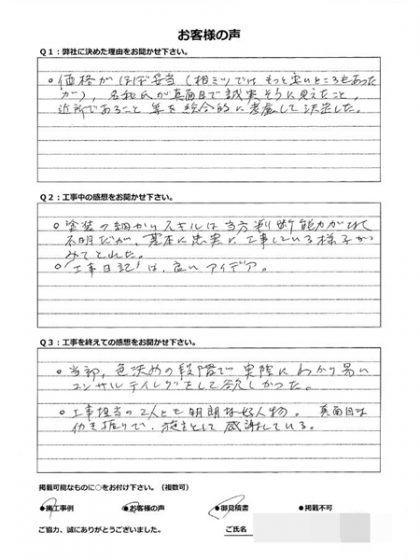 お客様の声
Q1：弊社に決めた理由をお聞かせ下さい。
○価格がほぼ妥当（相ミツではもっと安いところもあった
が）、名和氏が真面目で誠実そうに見えたこと、
近所であること等を総合的に考慮して決定した。
Q2：工事中の感想をお聞かせ下さい。
○塗装の細かいスキルは当方判断能力がなく
不明だが、基本に忠実に工事している様子が
みてとれた。
○「工事日記」は、良いアイデア。
Q3：工事を終えての感想をお聞かせ下さい。
○当初、色決めの段階で実際にわかり易い
コンサルティングをして欲しかった。
○工事担当の2人とも明朗な好人物。真面目な
働き振りで、施主として感謝している。
掲載可能なものに○をお付け下さい。（複数可）
●施工事例 ●お客様の声 ●御見積書 ●掲載不可
ご協力、誠にありがとうございました。 ご氏名